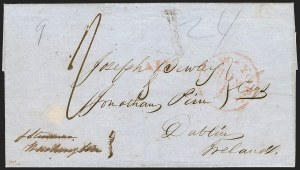 9
24
Joseph Bewley
Jonathan Pim Esqs
Dublin
Ireland.
Steamer
Washington